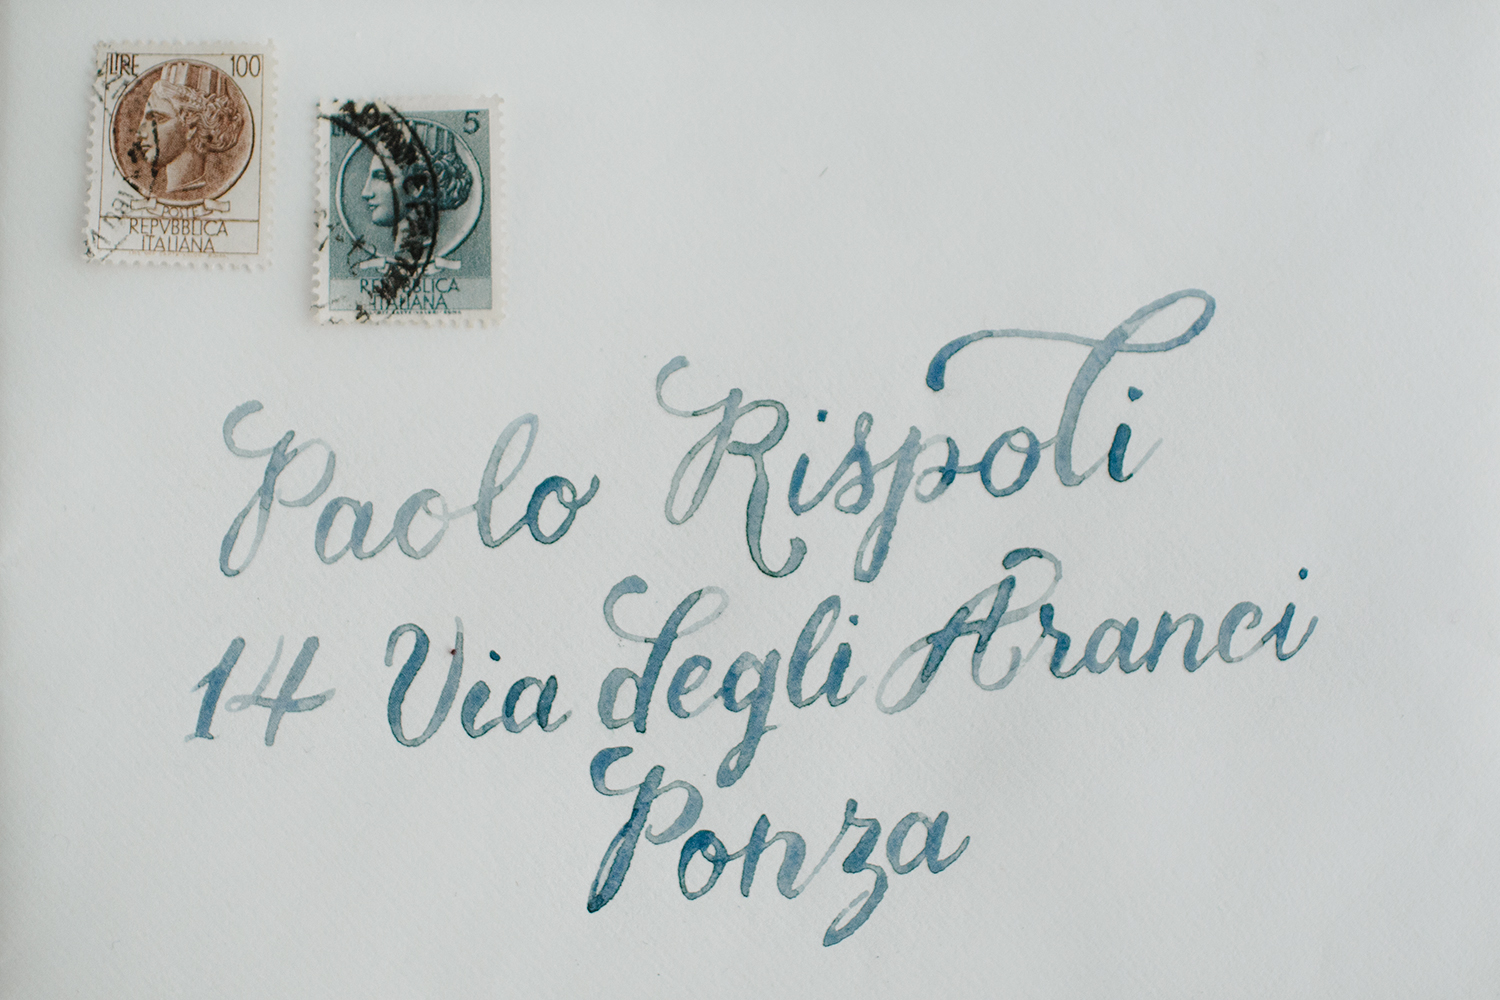 LIRE 100
POSTE
REPVBBLICA
ITALIANA
5
REPVBBLICA
ITALIANA
Paolo Rispoli
14 Via degli Aranci
Ponza